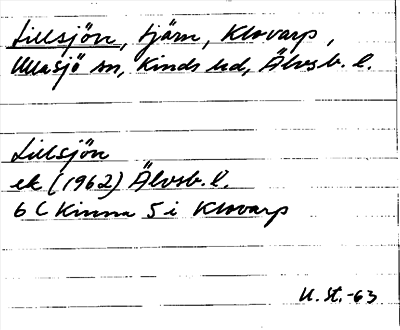 Lillsjön, tjärn, Klovarp,
Ullasjö sn, Kinds hd, Älvsb. l.
Lillsjön
ek (1962) Älvsb. l.
6 C Kinna 5 i Klovarp
U. St. -63